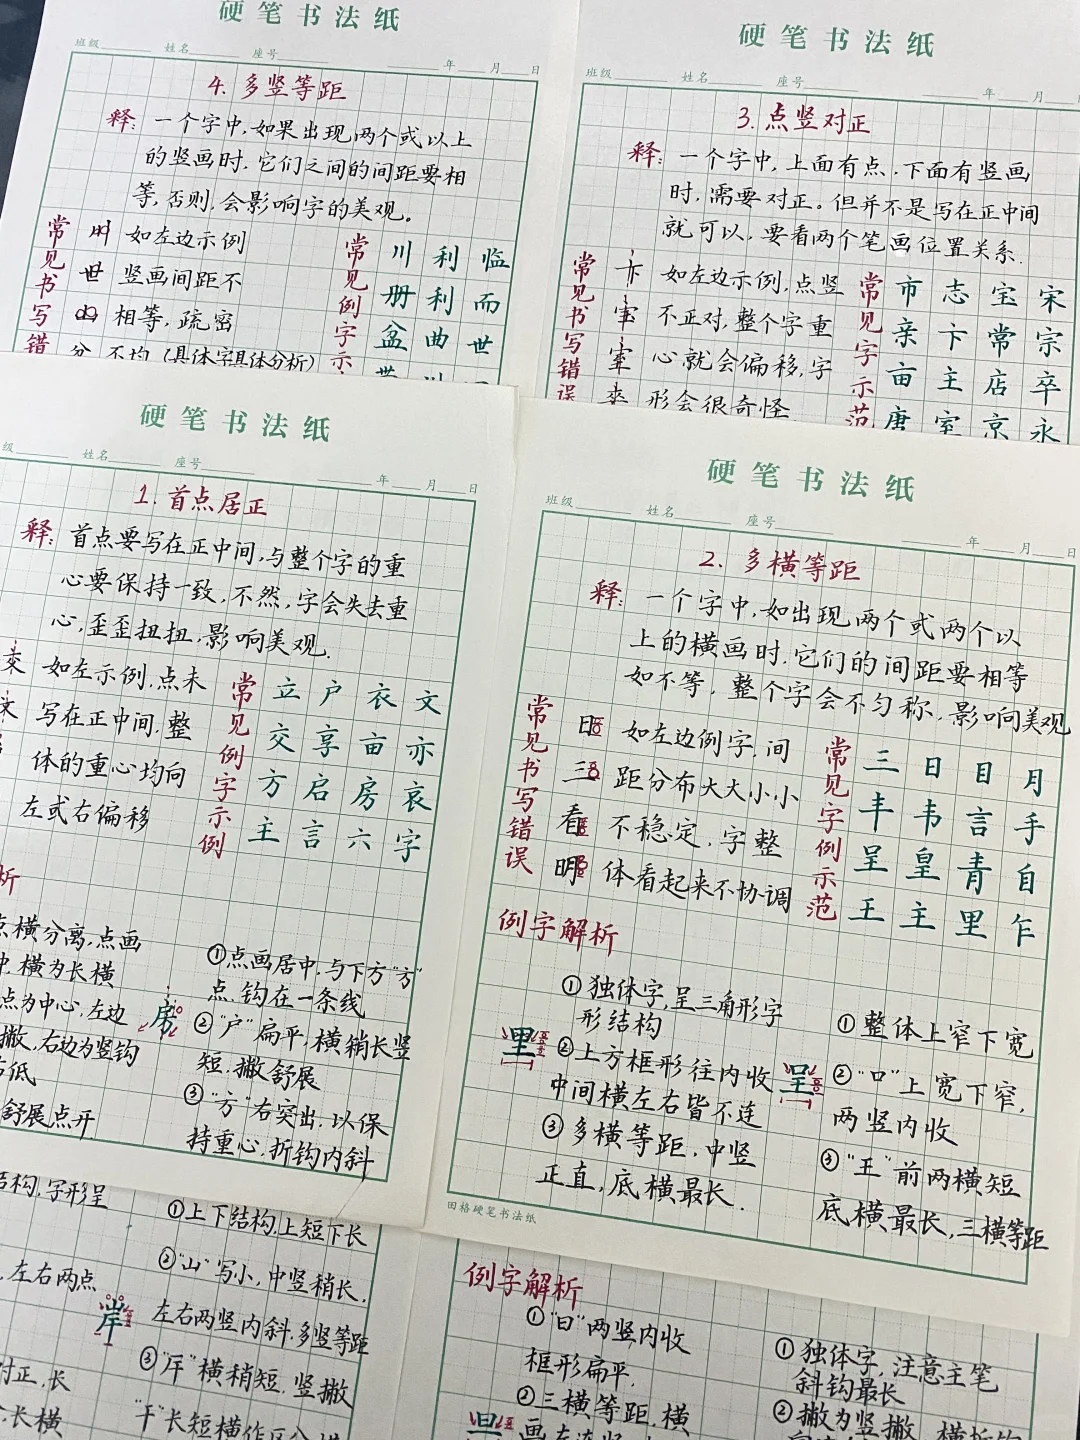 硬笔书法纸
班级 姓名 座号 年 月 日
4. 多竖等距
释: 一个字中,如果出现两个或以上
的竖画时,它们之间的间距要相
等,否则,会影响字的美观。
常见书写错
如左边示例
竖画间距不
相等,疏密
不均(具体字具体分析)
常见例字示
川 利 临
册 利 而
盆 曲 世
硬笔书法纸
班级 姓名 座号 年 月 日
3. 点竖对正
释: 一个字中,上面有点,下面有竖画
时,需要对正。但并不是写在正中间
就可以,要看两个笔画位置关系.
常见书写错误
卞
室
如左边示例,点竖
不正对,整个字重
心就会偏移,字
形会很奇怪
常见字示范
市 志 宝 宋
亲 卞 常 宗
亩 主 店 卒
唐 室 京 永
硬笔书法纸
级 姓名 座号 年 月 日
1. 首点居正
释: 首点要写在正中间,与整个字的重
心要保持一致,不然,字会失去重
心,歪歪扭扭,影响美观.
如左示例,点未
写在正中间,整
体的重心均向
左或右偏移
常见例字示例
立 户 衣 文
交 享 亩 亦
方 启 房 哀
主 言 六 字
析
点横分离,点画
中,横为长横
点为中心,左边
撇,右边为竖钩
低
舒展点开.
房
①点画居中,与下方"方"
点、钩在一条线
②"户"扁平,横稍长竖
短,撇舒展
③"方"右突出,以保
持重心,折钩内斜
硬笔书法纸
班级 姓名 座号 年 月 日
2. 多横等距
释: 一个字中,如出现两个或两个以
上的横画时,它们的间距要相等
如不等,整个字会不匀称,影响美观
常见书写错误
日
三
看
明
如左边例字,间
距分布大大小小
不稳定,字整
体看起来不协调
常见字例示范
三 日 目 月
丰 韦 言 手
呈 皇 青 自
王 主 里 乍
例字解析
里
①独体字,呈三角形字
形结构
②上方框形往内收
中间横左右皆不连
③多横等距,中竖
正直,底横最长.
呈
①整体上窄下宽
②"口"上宽下窄,
两竖内收
③"王"前两横短
底横最长,三横等距
田格硬笔书法纸
结构,字形呈
,左右两点
对正,长
长横
岸
①上下结构,上短下长
②"山"写小,中竖稍长,
左右两竖内斜,多竖等距
③"厈"横稍短,竖撇
"干"长短横作区分
例字解析
①"日"两竖内收
框形扁平.
②三横等距,横
①独体字,注意主笔
斜钩最长
②撇为竖撇,横折钩